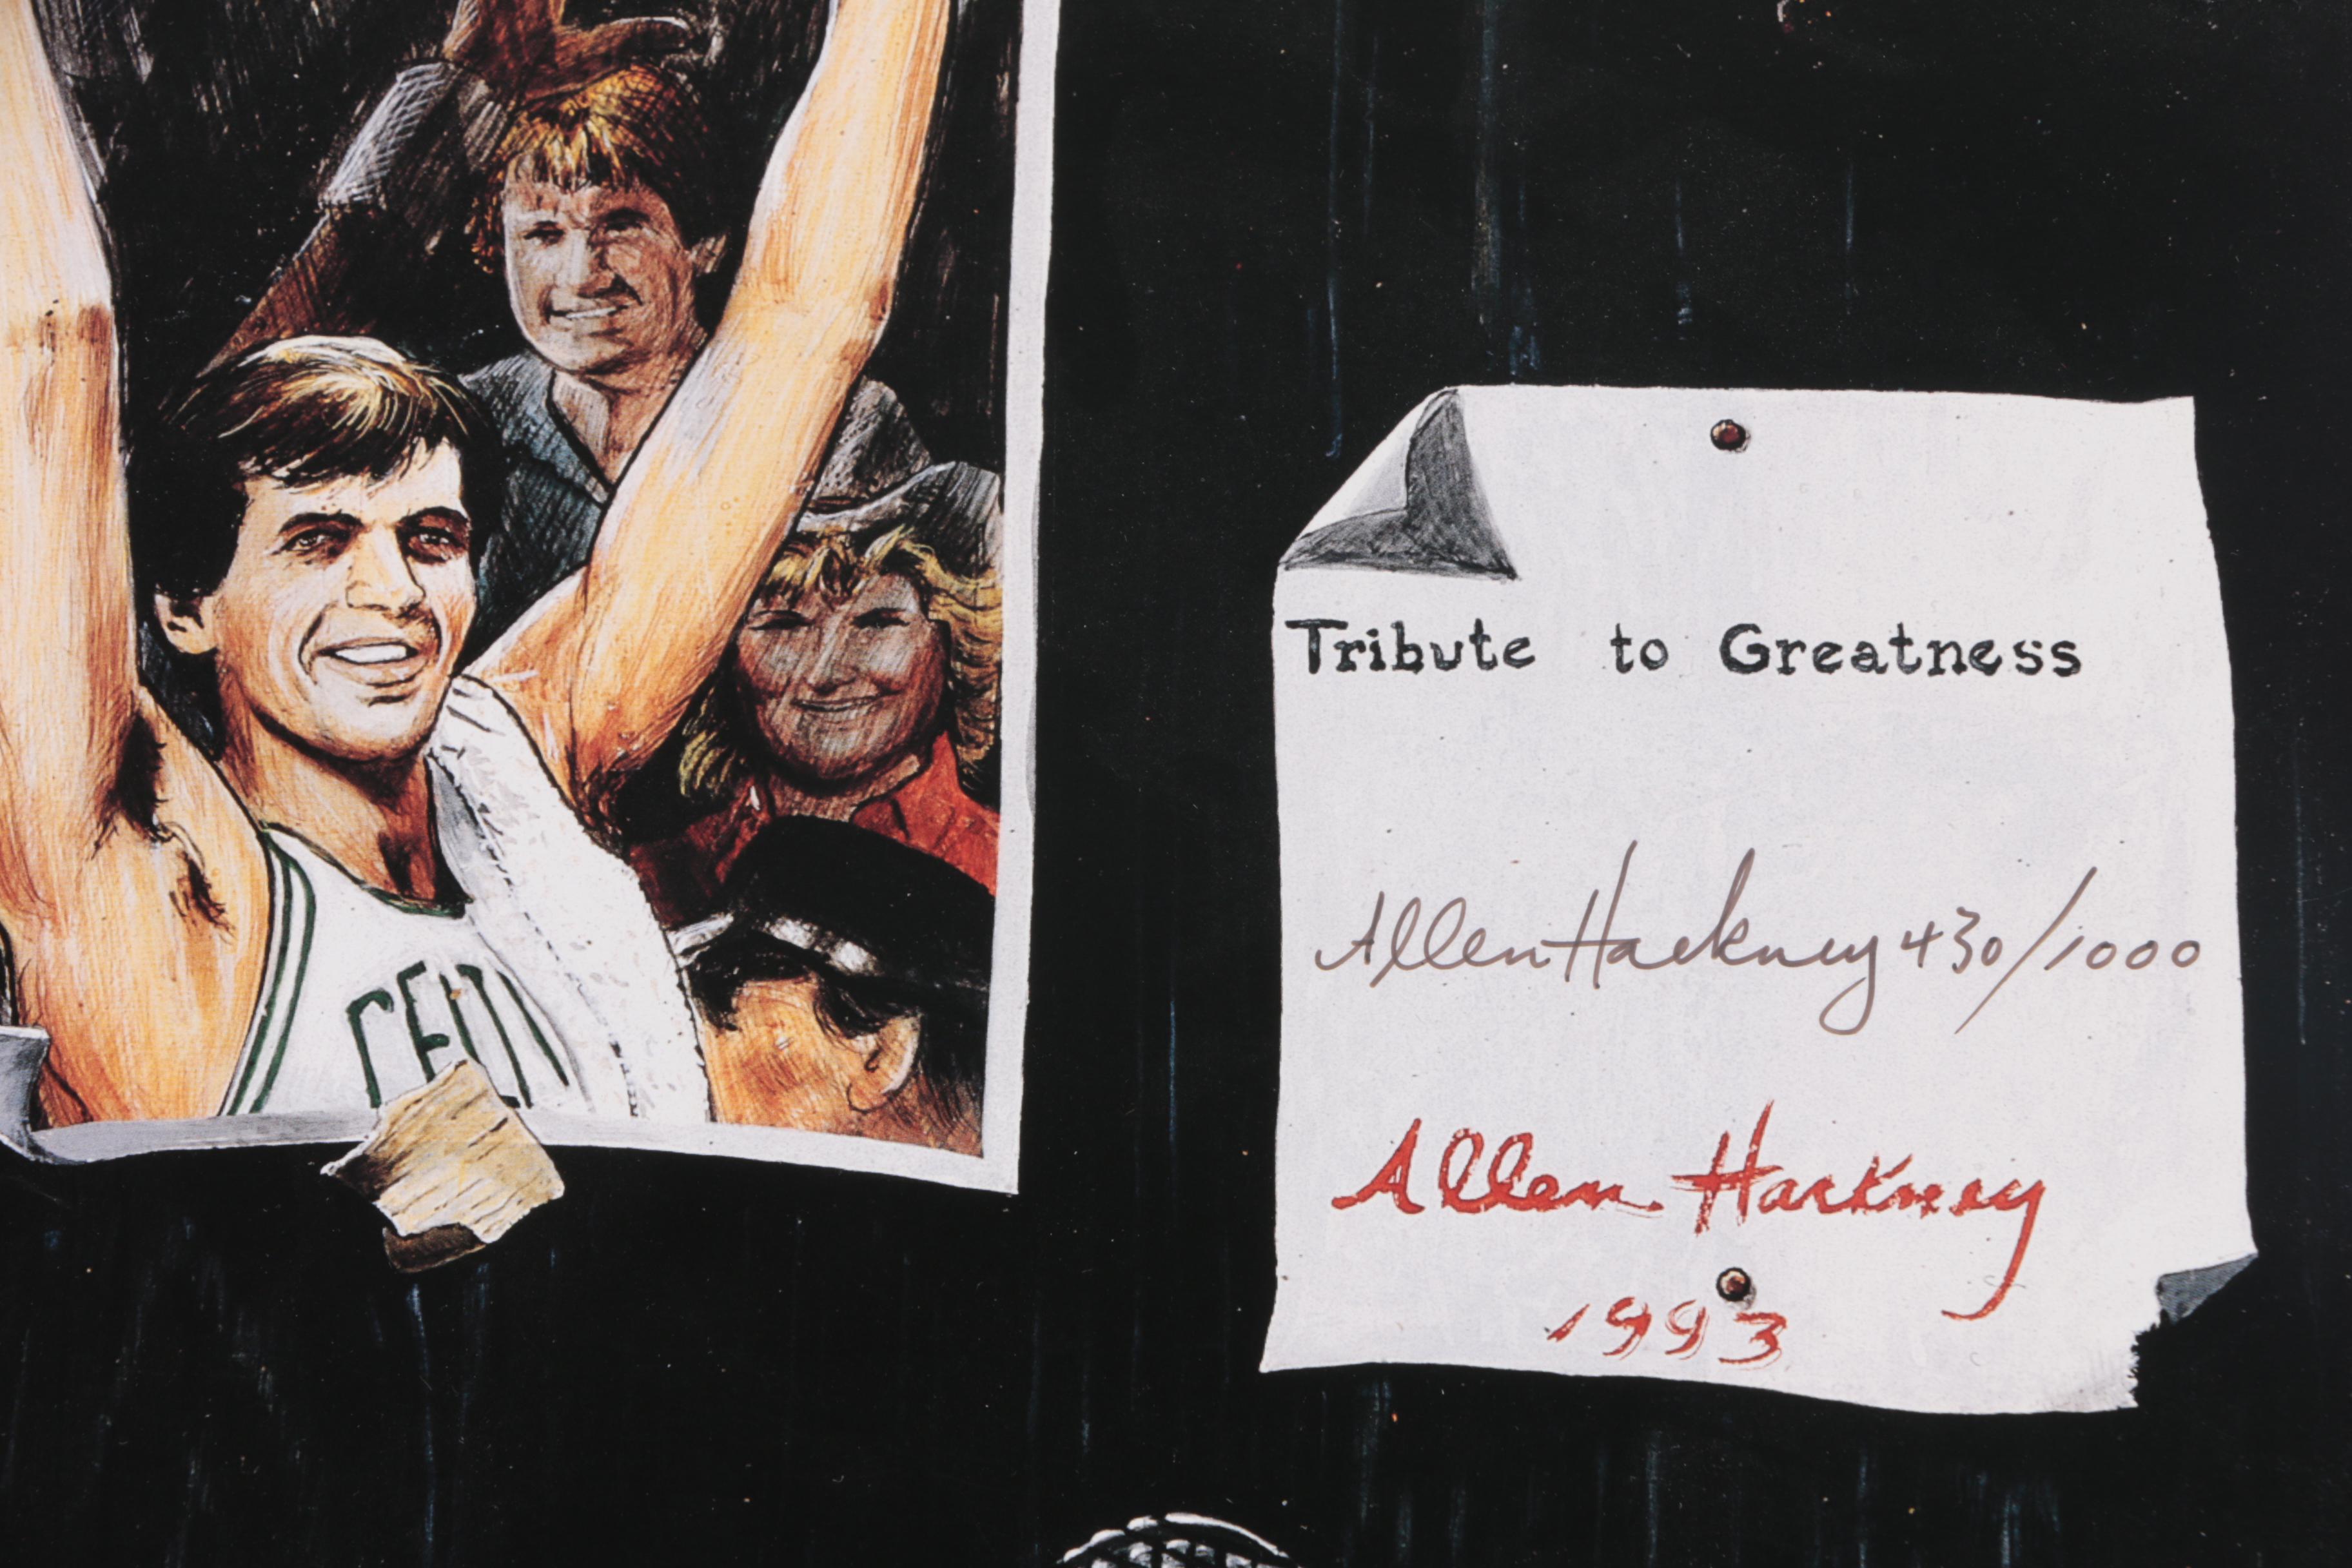 Tribute to Greatness
Allen Hackney 430/1000
Allen Hackney
1993
CELTI